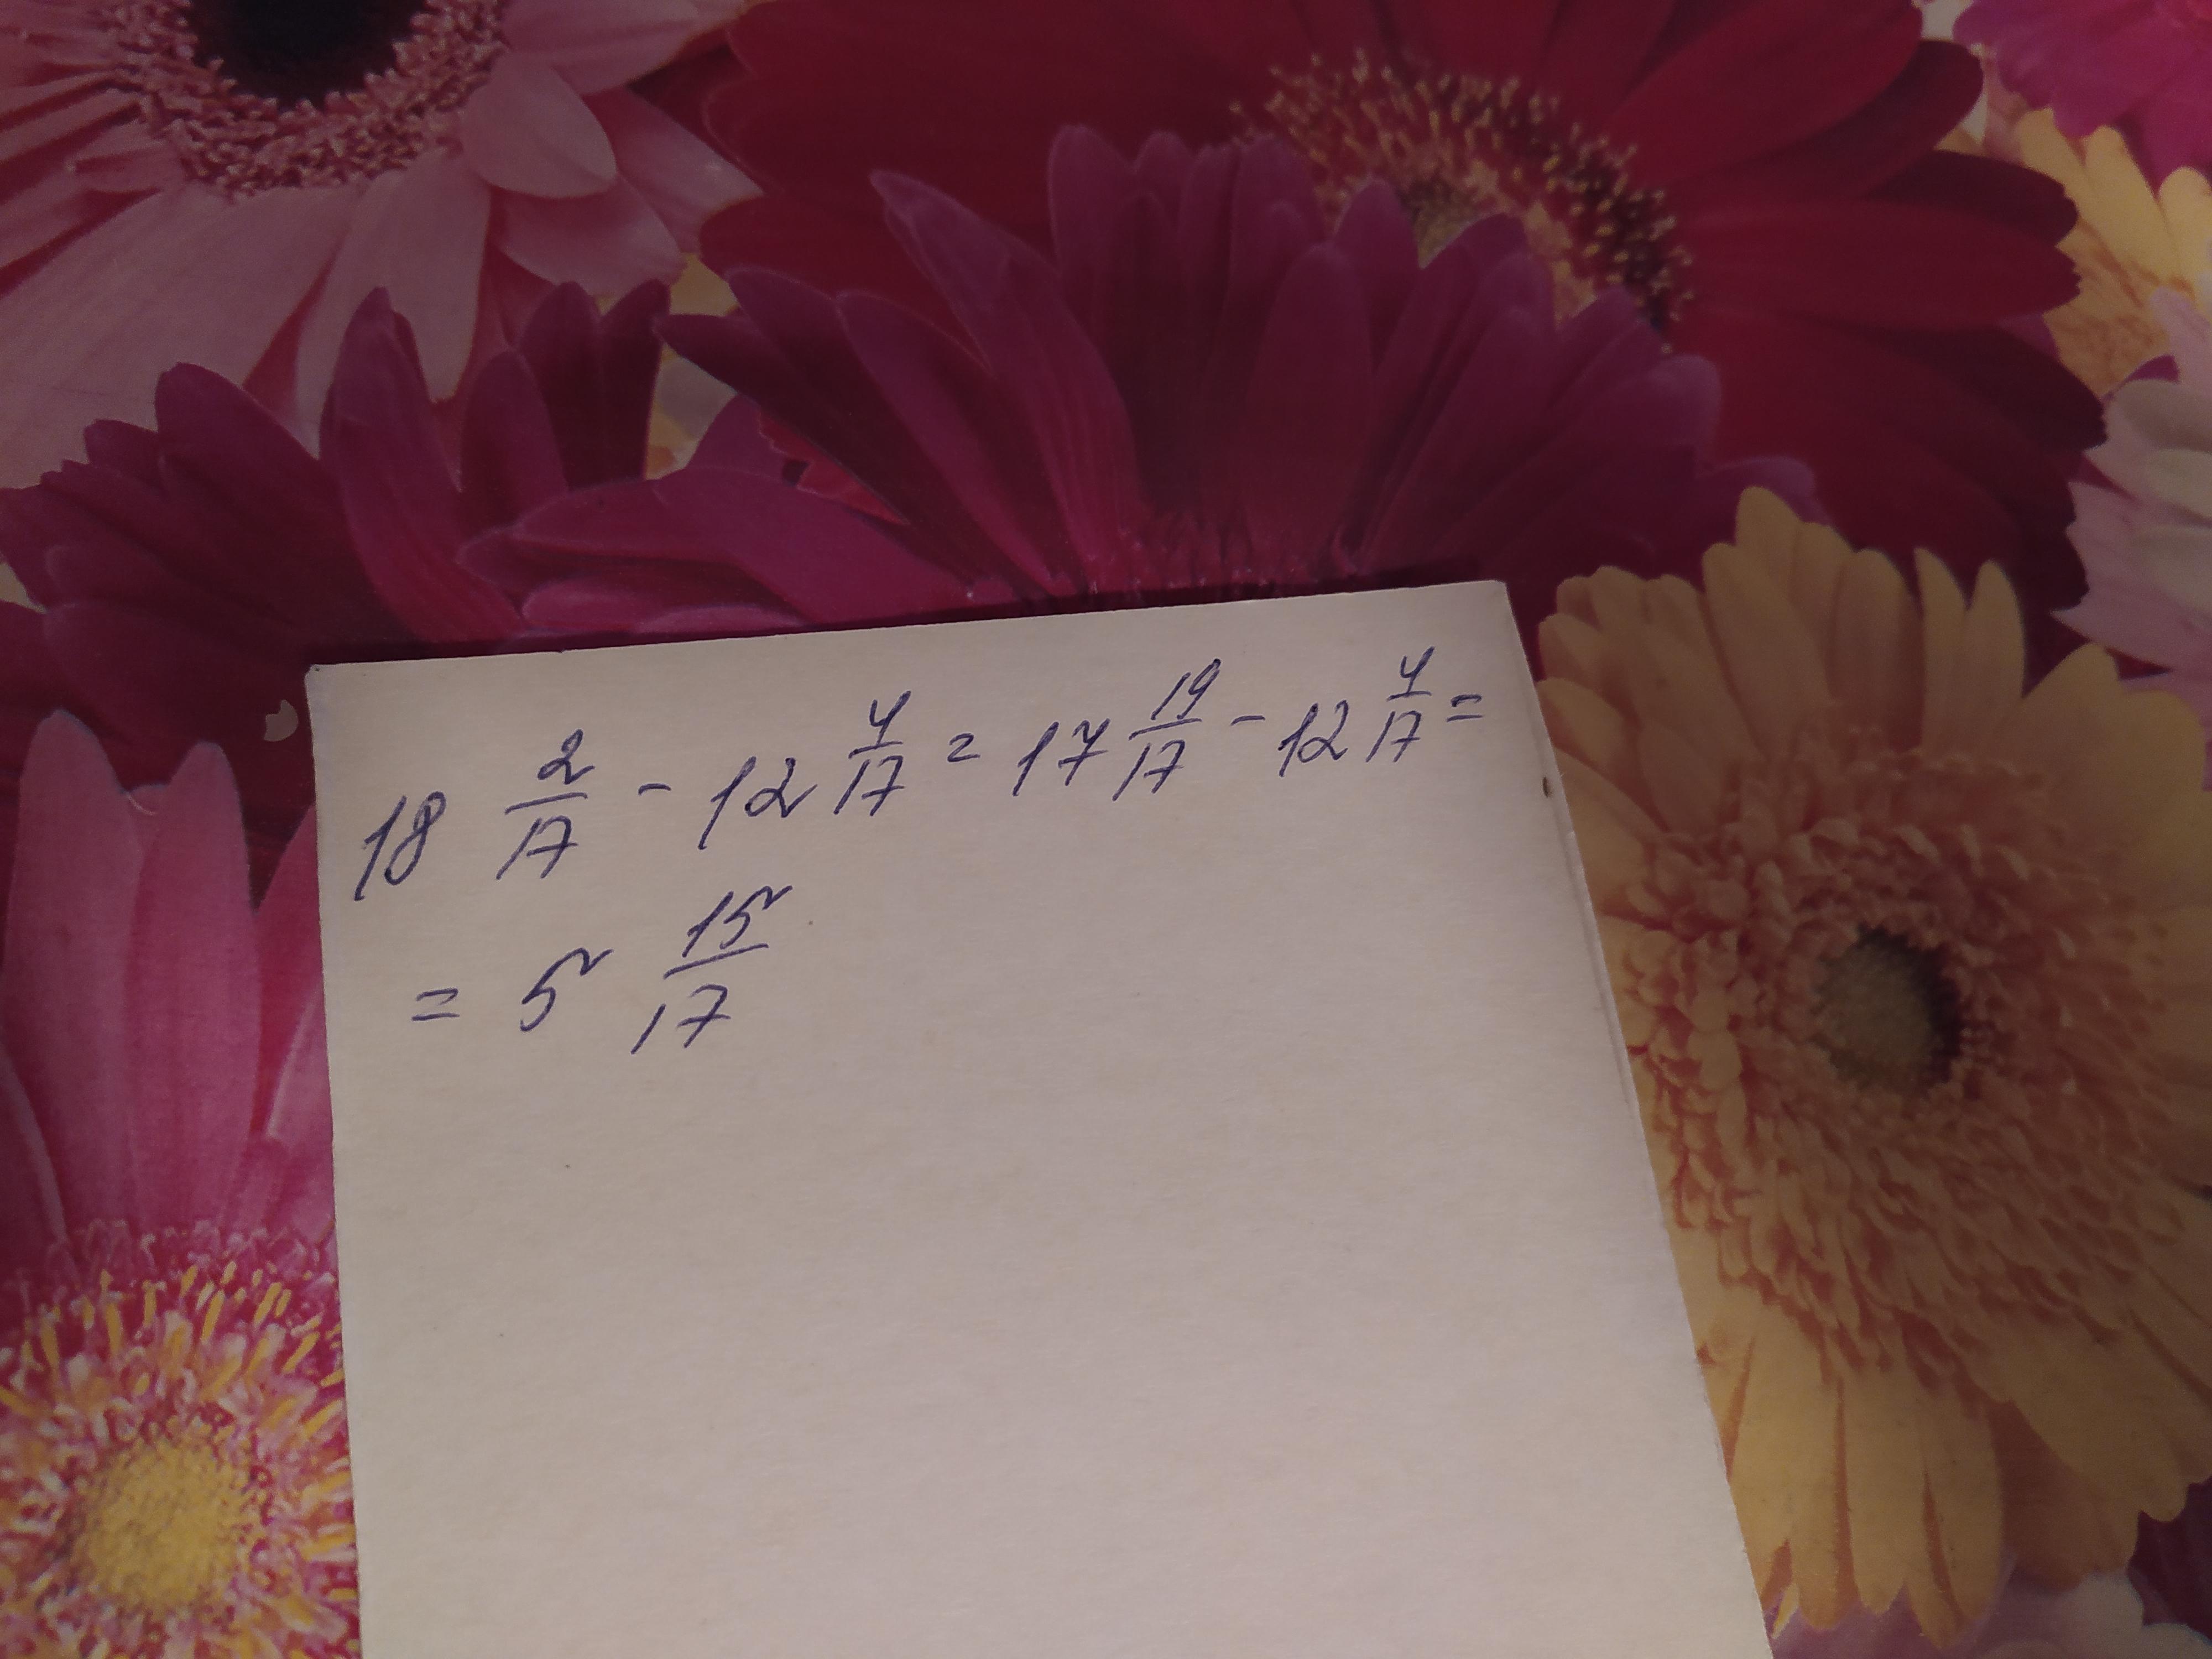 18 2/17 - 12 4/17 = 17 19/17 - 12 4/17 =
= 5 15/17